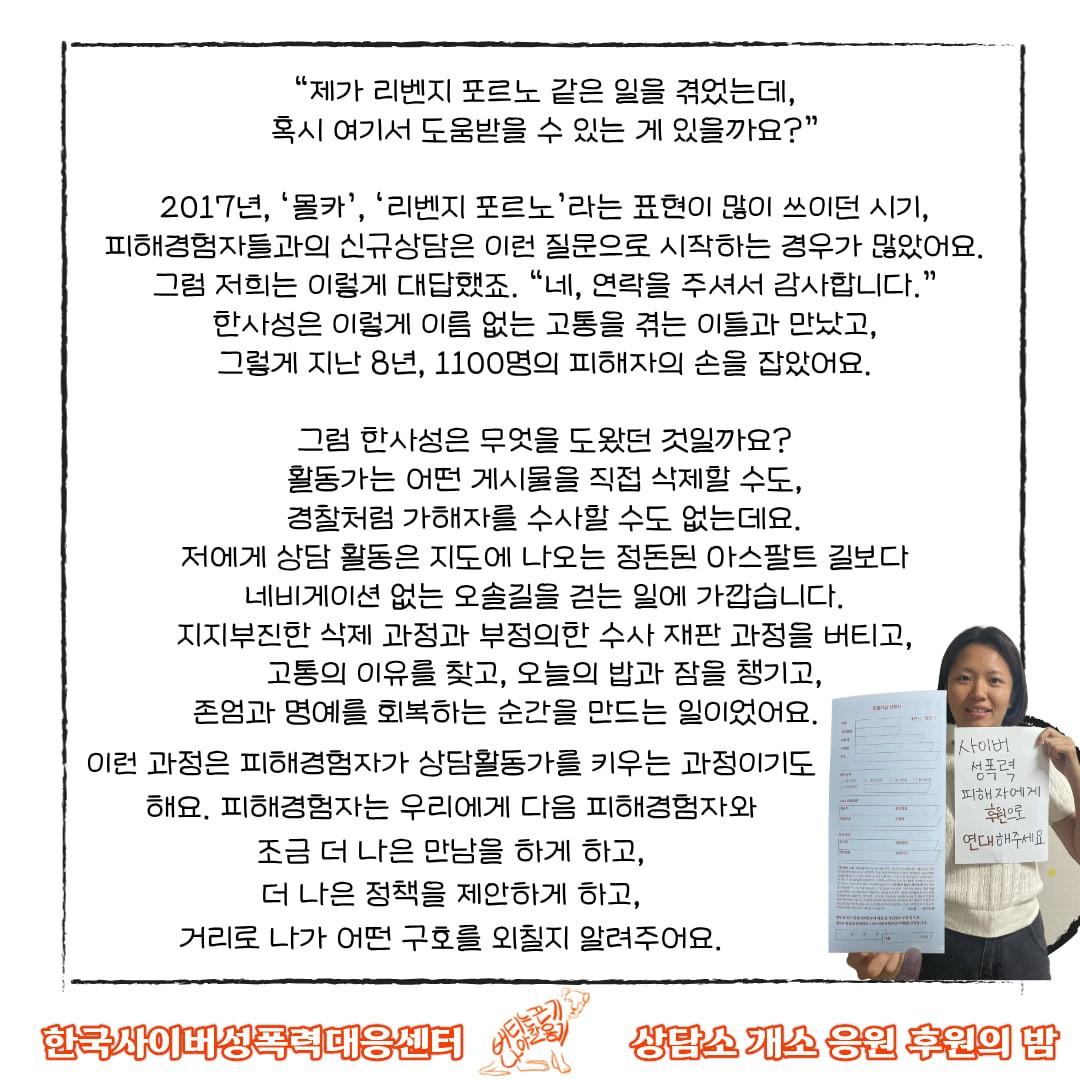 “제가 리벤지 포르노 같은 일을 겪었는데,
혹시 여기서 도움받을 수 있는 게 있을까요?”
2017년, ‘몰카’, ‘리벤지 포르노’라는 표현이 많이 쓰이던 시기,
피해경험자들과의 신규상담은 이런 질문으로 시작하는 경우가 많았어요.
그럼 저희는 이렇게 대답했죠. “네, 연락을 주셔서 감사합니다.”
한사성은 이렇게 이름 없는 고통을 겪는 이들과 만났고,
그렇게 지난 8년, 1100명의 피해자의 손을 잡았어요.
그럼 한사성은 무엇을 도왔던 것일까요?
활동가는 어떤 게시물을 직접 삭제할 수도,
경찰처럼 가해자를 수사할 수도 없는데요.
저에게 상담 활동은 지도에 나오는 정돈된 아스팔트 길보다
네비게이션 없는 오솔길을 걷는 일에 가깝습니다.
지지부진한 삭제 과정과 부정의한 수사 재판 과정을 버티고,
고통의 이유를 찾고, 오늘의 밥과 잠을 챙기고,
존엄과 명예를 회복하는 순간을 만드는 일이었어요.
이런 과정은 피해경험자가 상담활동가를 키우는 과정이기도
해요. 피해경험자는 우리에게 다음 피해경험자와
조금 더 나은 만남을 하게 하고,
더 나은 정책을 제안하게 하고,
거리로 나가 어떤 구호를 외칠지 알려주어요.
사이버
성폭력
피해자에게
후원으로
연대해주세요
한국사이버성폭력대응센터
상담소 개소 응원 후원의 밤